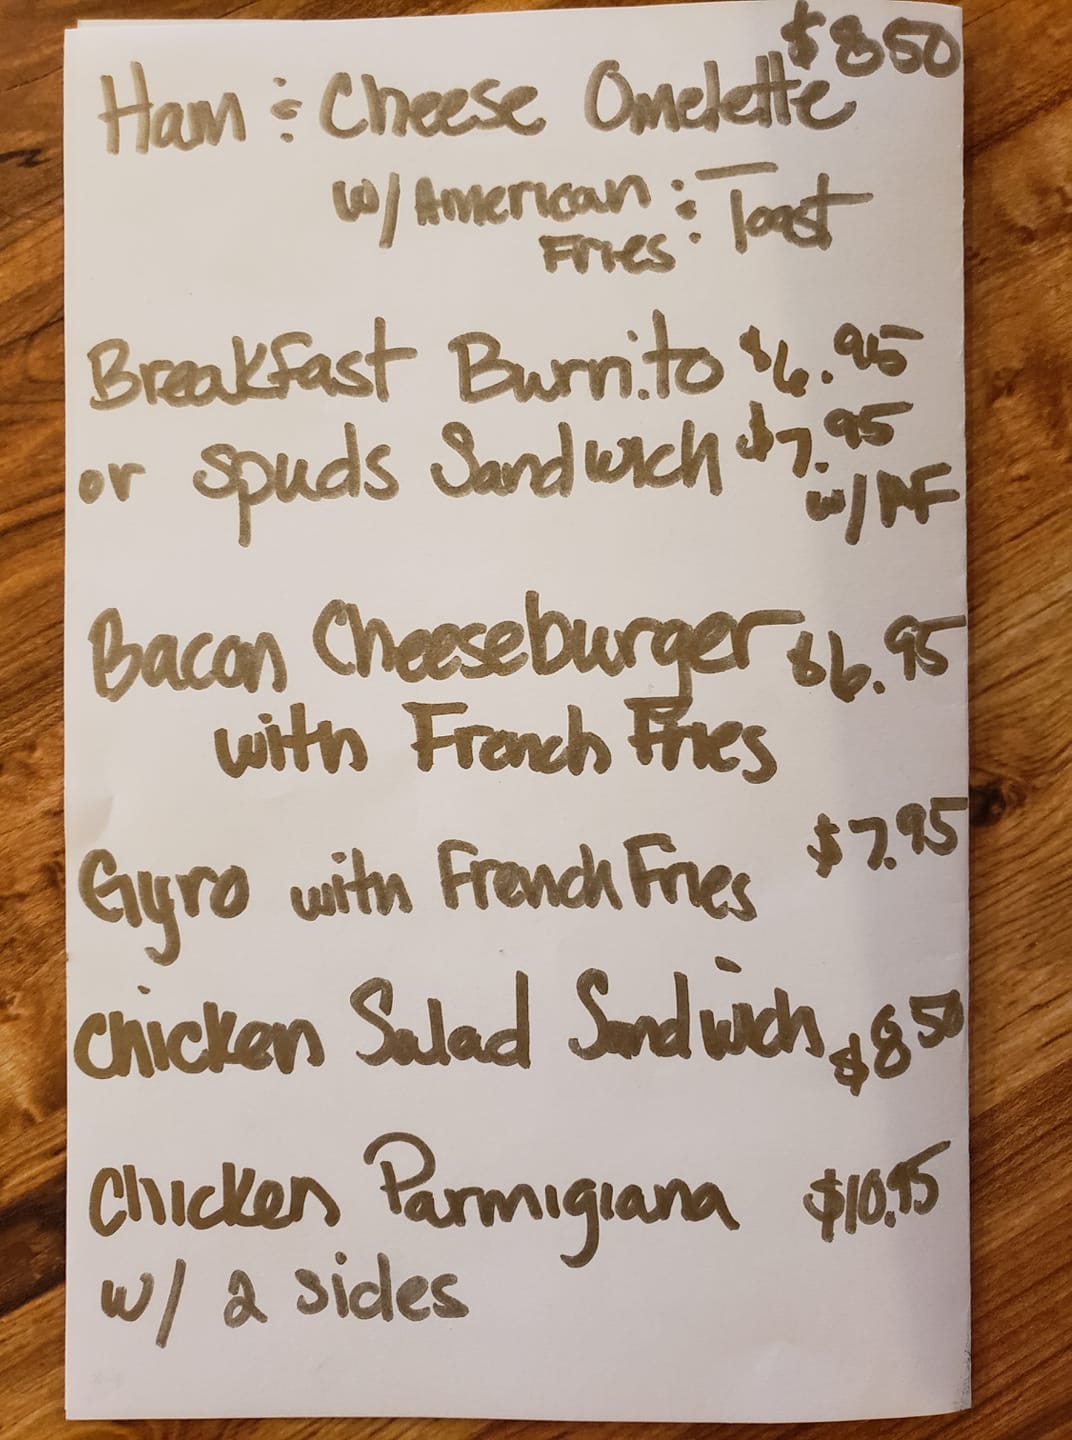 Ham & Cheese Omelette $8.50
w/ American & Toast
Fries
Breakfast Burrito $6.95
or Spuds Sandwich $7.95
w/ AF
Bacon Cheeseburger $6.95
with French Fries
Gyro with French Fries $7.95
Chicken Salad Sandwich $8.50
Chicken Parmigiana $10.95
w/ 2 sides